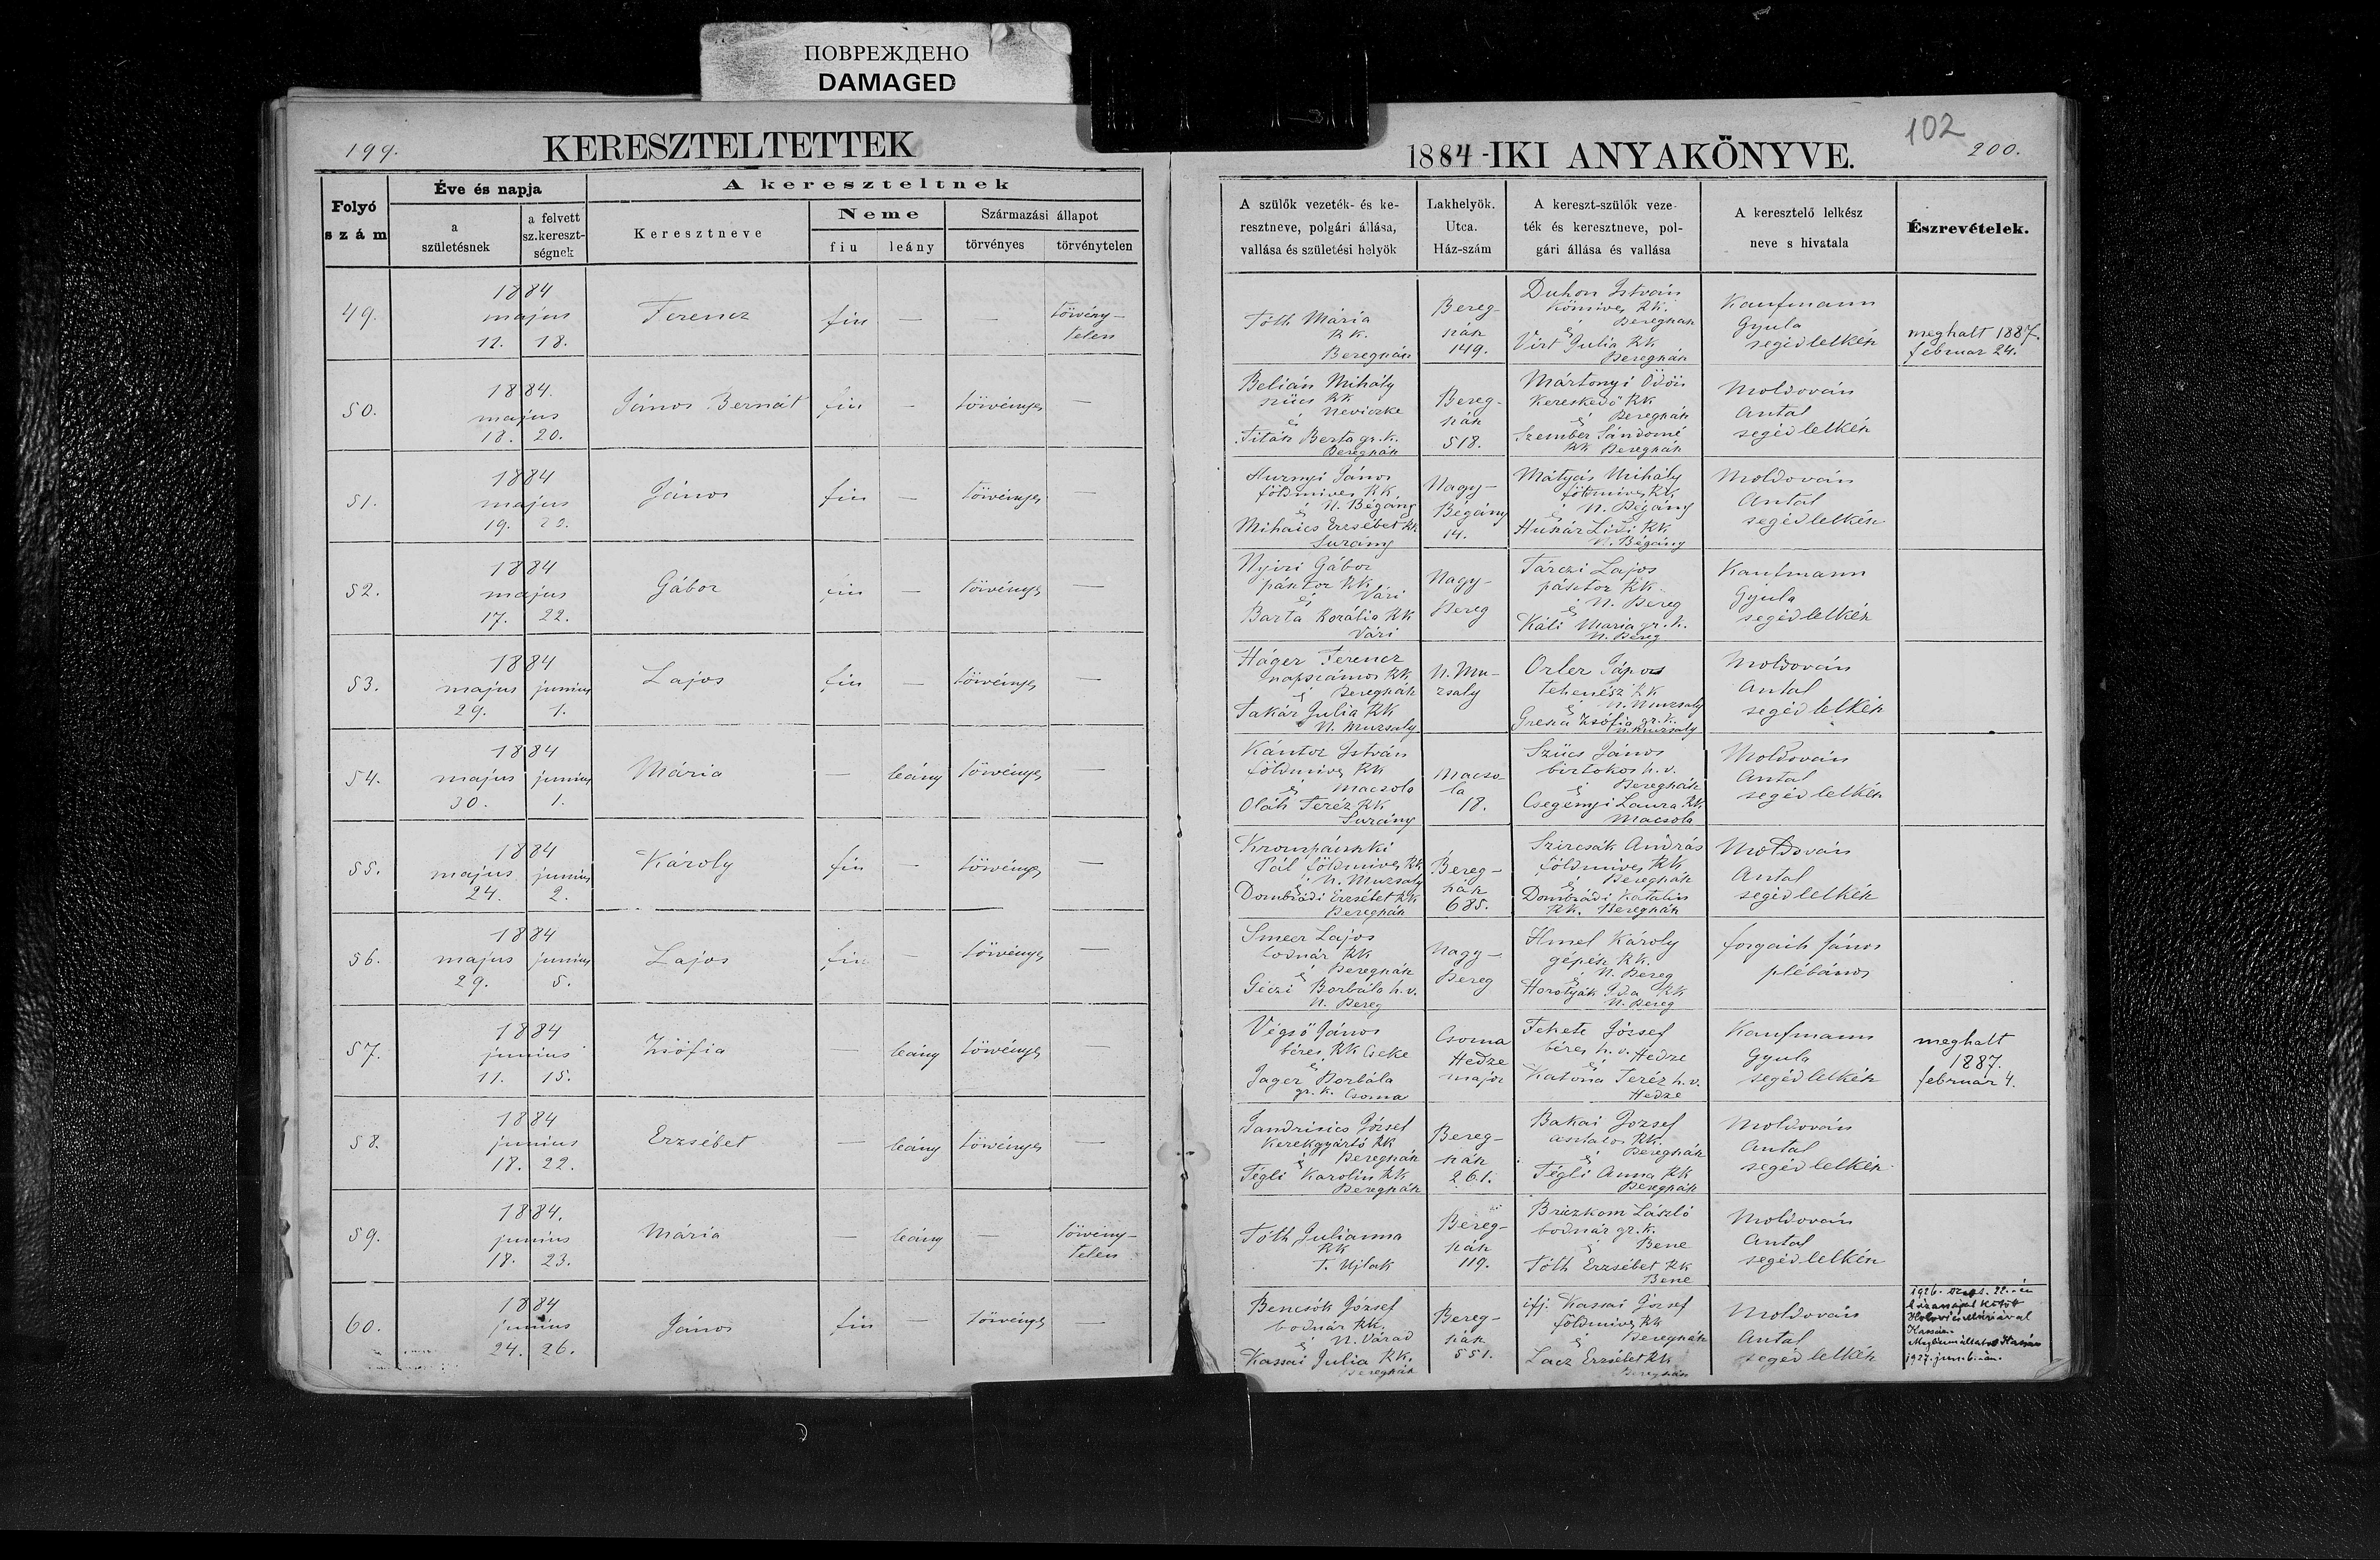 ПОВРЕЖДЕНО
DAMAGED
199.
KERESZTELTETTEK
Folyó
szám
Éve és napja
a
születésnek
a felvett
sz.kereszt-
ségnek
A kereszteltnek
Keresztneve
Neme
fiu
leány
Származási állapot
törvényes
törvénytelen
49.
1884
majus
11. 18.
Ferencz
fiu — —
törvény-
telen
50.
1884.
majus
18. 20.
János Bernát
fiu
törvényes —
51.
1884
majus
19.
János
fiu —
törvényes —
52.
1884
majus
17. 22.
Gábor
fiu —
törvényes —
53.
1884
majus junius
29. 1.
Lajos
fiu —
törvényes —
54.
1884
majus junius
30. 1.
Mária
— leány
törvényes —
55.
1884
majus junius
24. 2.
Károly
fiu —
törvényes —
56.
1884
majus junius
29. 5.
Lajos
fiu —
törvényes —
57.
1884
junius
11. 15.
Zsófia
— leány
törvényes —
58.
1884
junius
18. 22.
Erzsébet
— leány
törvényes —
59.
1884.
junius
18. 23.
Mária
— leány —
törvény-
telen
60.
1884
junius
24. 26.
János
fiu —
törvényes —
1884-IKI ANYAKÖNYVE.
102
200.
A szülők vezeték- és ke-
resztneve, polgári állása,
vallása és születési helyök
Lakhelyök.
Utca.
Ház-szám
A kereszt-szülők veze-
ték és keresztneve, pol-
gári állása és vallása
A keresztelő lelkész
neve s hivatala
Észrevételek.
Tóth Mária
RK.
Beregszász
Bereg-
szász
149.
Duhon István
Kőmives RK.
Beregszász
és
Virt Julia RK
Beregszász
Kaufmann
Gyula
segédlelkész
meghalt 1887.
februar 24.
Belián Mihály
szücs RK
Neviczke
és
Titák Berta gr. k.
Beregszász
Bereg-
szász
518.
Mártonyi Ödön
Kereskedő RK
és Beregszász
Szember Sándorné
RK Beregszász
Moldován
Antal
segédlelkész
Hursnyi János
földmives RK.
és N. Bégány
Mihaics Erzsébet RK
Surány
Nagy-
Bégány
14.
Mátyás Mihály
földmives RK.
és N. Bégány
Huszár Lidi RK
N. Bégány
Moldován
Antal
segédlelkész
Nyiri Gábor
pásztor RK
és Vári
Barta Rozália RK
Vári
Nagy-
Bereg
Tárczi Lajos
pásztor RK
és N. Bereg
Káli Maria gr. k.
N. Bereg
Kaufmann
Gyula
segédlelkész
Háger Ferencz
napszámos RK
és Beregszász
Takár Julia RK
N. Muzsaly
N. Mu-
zsaly
Orler János
tehenész RK
és N. Muzsaly
Zsófia gr. k.
N. Muzsaly
Moldován
Antal
segédlelkész
Kántor István
földmives RK
és Macsola
Oláh Teréz RK
Surány
Macso
la
18.
Szücs János
birtokos h. v.
és Beregszász
Csegényi Laura RK
Macsola
Moldován
Antal
segédlelkész
Krompánszki
Pál földmives RK
és N. Muzsaly
Dombrádi Erzsébet RK
Beregszász
Bereg-
szász
685.
Szircsák András
földmives RK
és Beregszász
Dombrádi Katalin
RK. Beregszász
Moldován
Antal
segédlelkész
Smeer Lajos
bodnár RK
és Beregszász
Géczi Borbála h. v.
N. Bereg
Nagy-
Bereg
Hmel Károly
gépész RK.
és N. Bereg
Ida RK
N. Bereg
forgách János
plébános
Végső János
béres RK Cseke
és
Jager Borbála
gr. k. Csoma
Csoma
Hedze
major
Fekete József
béres h. v. Hedze
és
Katona Teréz h. v.
Hedze
Kaufmann
Gyula
segédlelkész
meghalt
1887.
februar 4.
Jandrisics József
Kerekgyártó RK
és Beregszász
Tégli Karolin RK
Beregszász
Bereg-
szász
261.
Bakai József
asztalos RK.
és Beregszász
Tégli Anna RK
Beregszász
Moldován
Antal
segédlelkész
Tóth Julianna
RK
T. Ujlak
Bereg-
szász
119.
László
bodnár gr. k.
és Bene
Tóth Erzsébet RK
Bene
Moldován
Antal
segédlelkész
Bencsók József
bodnár RK.
és N. Várad
Kassai Julia RK.
Beregszász
Bereg-
szász
551.
ifj. Kassai József
földmives RK
és Beregszász
Lacz Erzsébet RK
Beregszász
Moldován
Antal
segédlelkész
1926. szept. 22.-én
házasságot kötött
Kassán.
1927. jun. 6.-án.